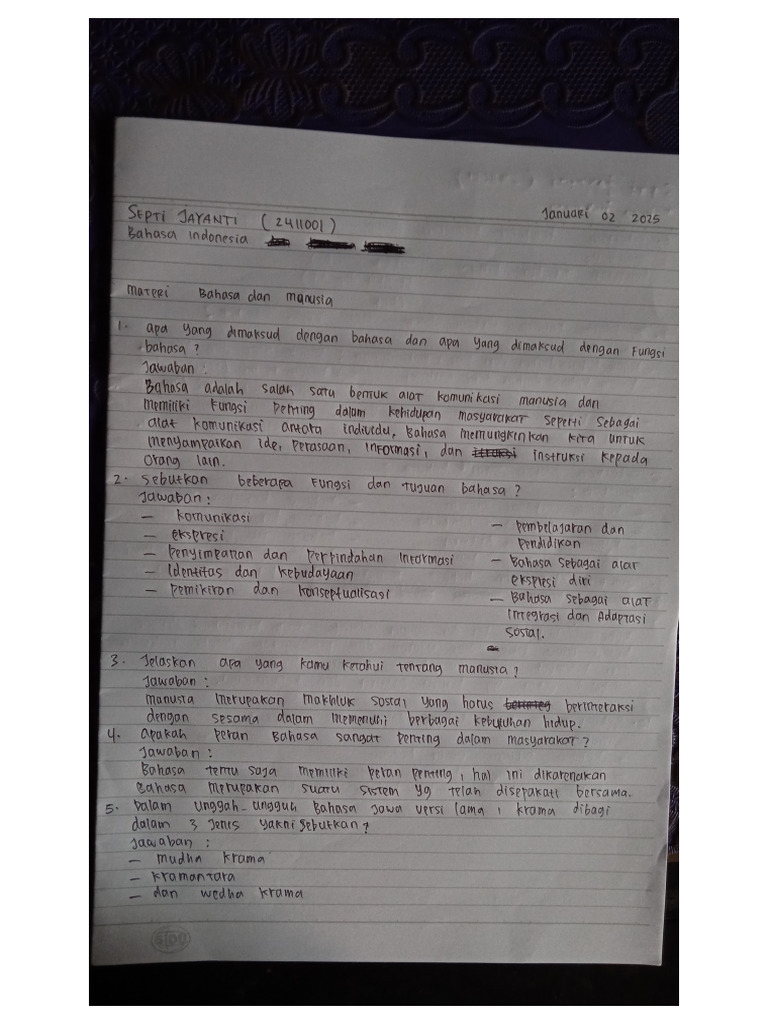 SEPTI JAYANTI (2411001)
Januari 02 2025
Bahasa Indonesia
Materi Bahasa dan manusia
1. apa yang dimaksud dengan bahasa dan apa yang dimaksud dengan Fungsi
bahasa?
Jawaban:
Bahasa adalah salah satu bentuk alat komunikasi manusia dan
memiliki fungsi penting dalam kehidupan masyarakat seperti sebagai
alat komunikasi antara individu, Bahasa memungkinkan kita untuk
menyampaikan ide, perasaan, informasi, dan instruksi kepada
orang lain.
2. Sebutkan beberapa fungsi dan tujuan bahasa?
Jawaban:
- komunikasi
- ekspresi
- penyimpanan dan perpindahan informasi
- Identitas dan kebudayaan
- pemikiran dan konseptualisasi
- pembelajaran dan
pendidikan
- Bahasa sebagai alat
ekspresi diri
- Bahasa sebagai alat
Integrasi dan Adaptasi
sosial.
3. Jelaskan apa yang kamu ketahui tentang manusia?
Jawaban:
manusia merupakan makhluk sosial yang harus berinteraksi
dengan sesama dalam memenuhi berbagai kebutuhan hidup.
4. apakah peran Bahasa sangat penting dalam masyarakat?
Jawaban:
Bahasa tentu saja memiliki peran penting, hal ini dikarenakan
Bahasa merupakan suatu sistem yg telah disepakati bersama.
5. Dalam unggah-ungguh Bahasa Jawa versi lama, krama dibagi
dalam 3 Jenis yakni sebutkan?
Jawaban:
- mudha krama
- kramantara
- dan wedha krama
SIDU